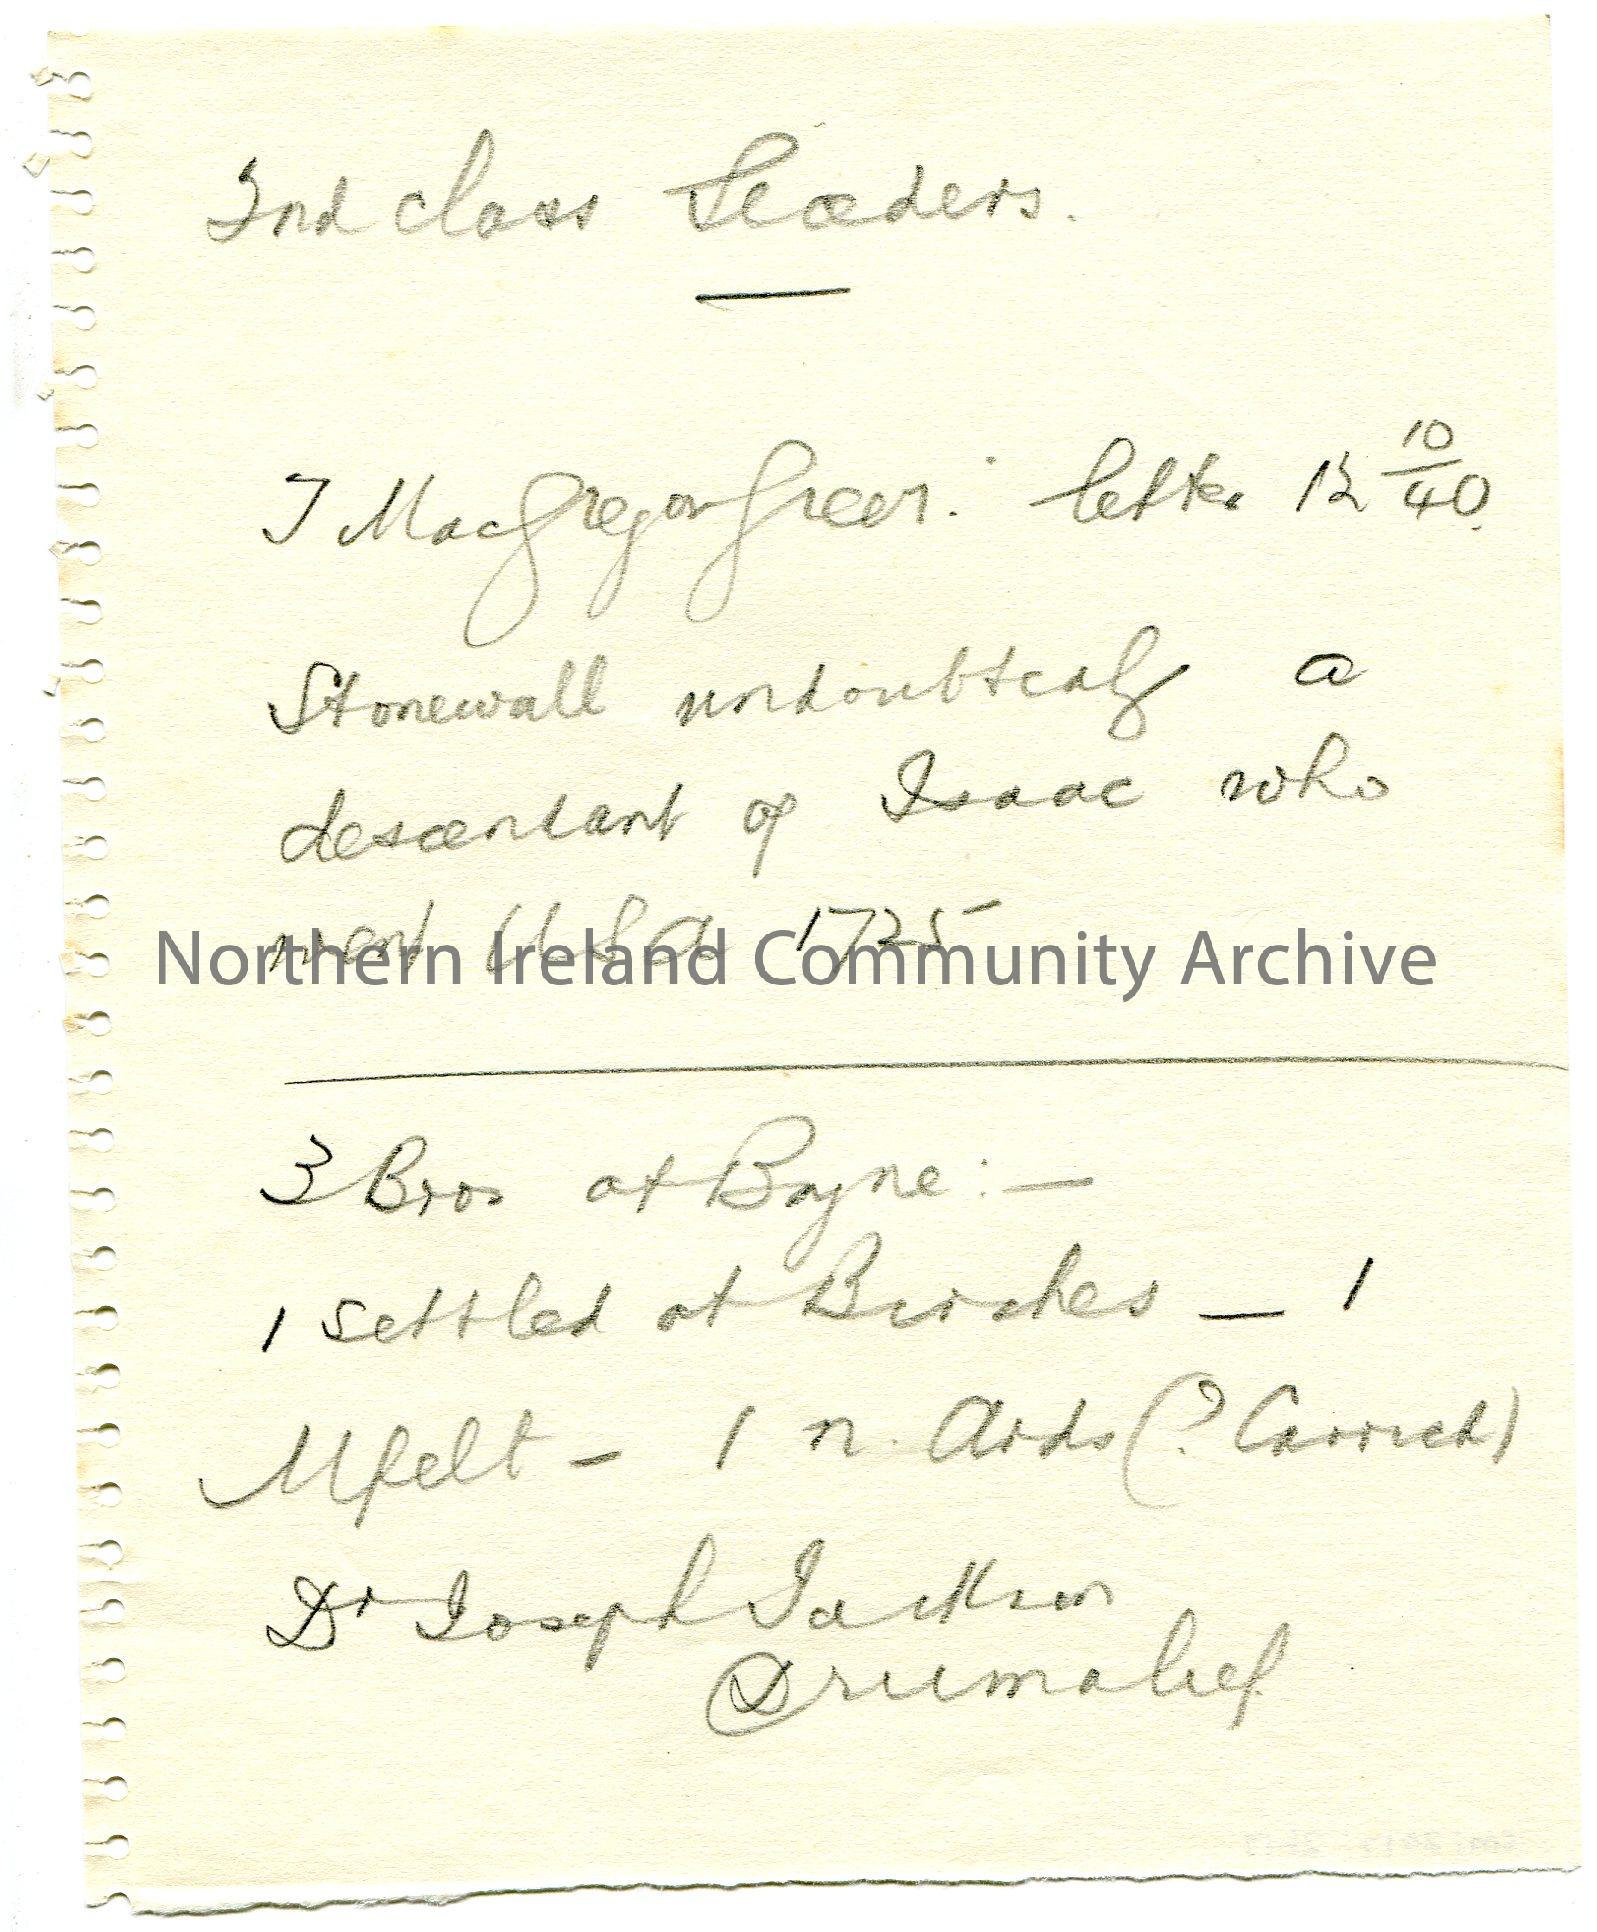 2nd class Leaders.
T MacGregor Greer: letter 12 10/40
Stonewall undoubtedly a
descendant of Isaac who
went USA 1725
Northern Ireland Community Archive
3 Bros at Boyne:—
1 settled at Birches — 1
Mfelt — 1 n. Ards (? Carrick)
Dr Joseph Jackson